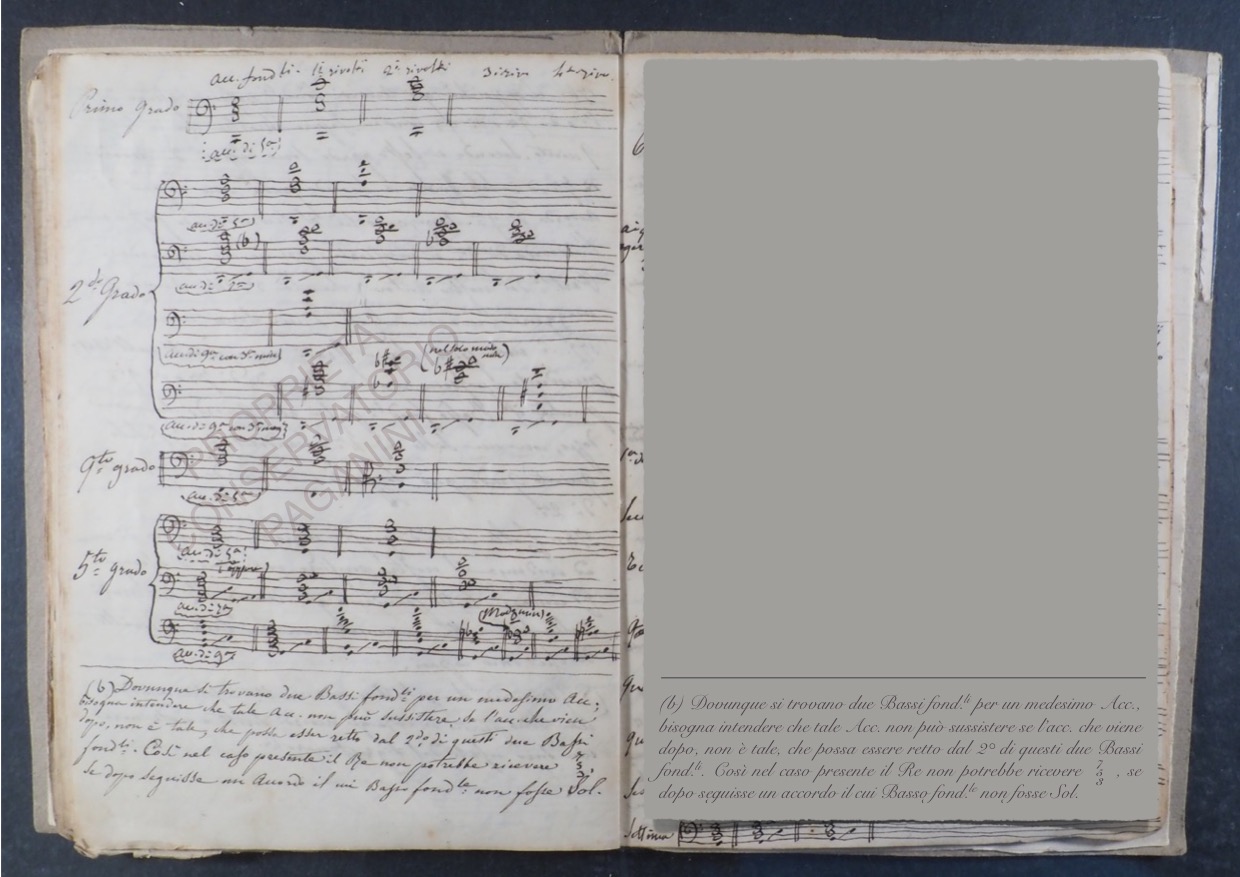 acc. fond.ti 1.i rivolti 2.i rivolti 3.i riv. 4.ti riv.
Primo grado
acc. di 5.a
acc. di 5.a
(b)
2.do Grado
acc. di 7.a
acc. di 9.a con 3.a min.
(nel solo modo min.)
acc. di 9.a con 3.a mag.
4.to grado
acc. di 5.a
5.to grado
acc. di 5.a
acc. di 7.a
(Mod. min.)
acc. di 9.a
PROPRIETA'
CONSERVATORIO
PAGANINI
(b) Dovunque si trovano due Bassi fond.ti per un medesimo Acc.,
bisogna intendere che tale Acc. non può sussistere se l'acc. che vien
dopo, non è tale, che possa esser retto dal 2.do di questi due Bassi
fond.ti. Così nel caso presente il Re non potrebbe ricevere 7 5 3,
se dopo seguisse un Accordo il cui Basso fond.le non fosse Sol.
(b) Dovunque si trovano due Bassi fond.ti per un medesimo Acc.,
bisogna intendere che tale Acc. non può sussistere se l'acc. che viene
dopo, non è tale, che possa essere retto dal 2° di questi due Bassi
fond.ti. Così nel caso presente il Re non potrebbe ricevere 7 5 3 , se
dopo seguisse un accordo il cui Basso fond.le non fosse Sol.
Settima